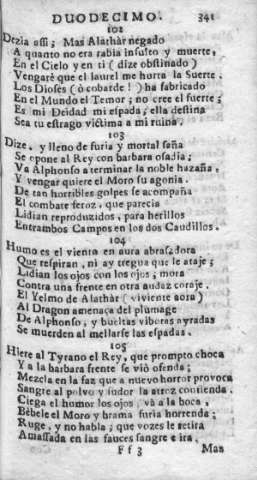 DUODECIMO. 341
102
Dezia assi; Mas Alathàr negado
A quanto no era rabia insulto y muerte,
En el Cielo y en ti (dize obstinado)
Vengarè que el laurel me hurta la Suerte.
Los Dioses (ò cobarde!) ha fabricado
En el Mundo el Temor; no cree el fuerte;
Es mi Deidad mi espada; ella destina
Sea tu estrago victima a mi ruina.
103
Dize, y lleno de furia y mortal saña
Se opone al Rey con barbara osadia;
Va Alphonso a terminar la noble hazaña,
Y vengar quiere el Moro su agonia.
De tan horribles golpes se acompaña
El combate feroz, que parecia
Lidian reproduzidos, para herillos
Entrambos Campos en los dos Caudillos.
104
Humo es el viento en aura abrasadora
Que respiran, ni ay tregua que le ataje;
Lidian los ojos con los ojos; mora
Contra una frente en otra audaz coraje.
El Yelmo de Alathàr (viviente aora)
Al Dragon amenaça del plumage
De Alphonso, y bueltas viboras ayradas
Se muerden al mellarse las espadas.
105
Hiere al Tyrano el Rey, que prompto choca
Y a la barbara frente se viò ofenda;
Mezcla en la faz que a nuevo horror provoca
Sangre al polvo y sudor la atroz contienda.
Ciega el humor los ojos, và a la boca,
Bebele el Moro y brama furia horrenda;
Ruge, y no habla; que vozes le retira
Amassada en las fauces sangre e ira.
Ff 3 Mas